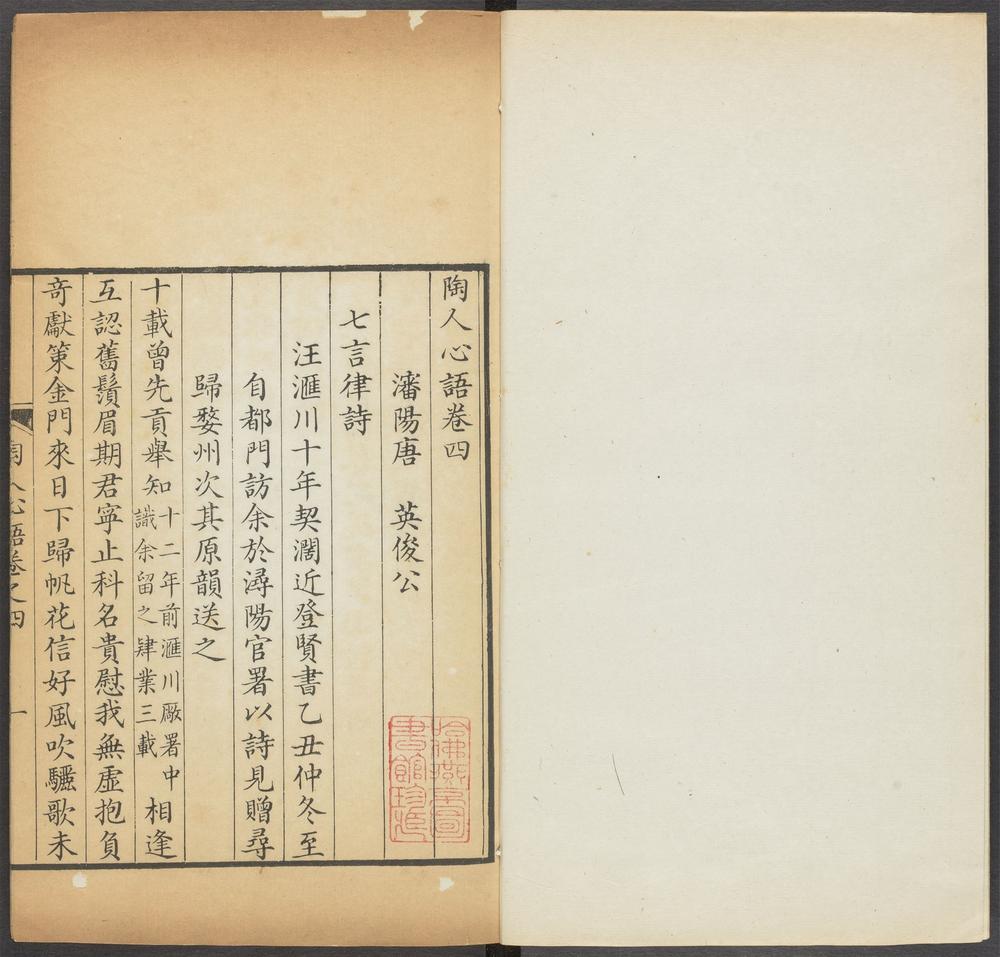 陶人心語卷四
瀋陽唐　英俊公
七言律詩
汪滙川十年契濶近登賢書乙丑仲冬至
自都門訪余於潯陽官署以詩見贈尋
歸婺州次其原韻送之
十載曾先貢舉知十二年前滙川厰署中識余留之肄業三載相逢
互認舊鬚眉期君寧止科名貴慰我無虛抱負
竒獻策金門來日下歸帆花信好風吹驪歌未
陶人心語卷之四
一
哈佛燕京圖
書館珍藏